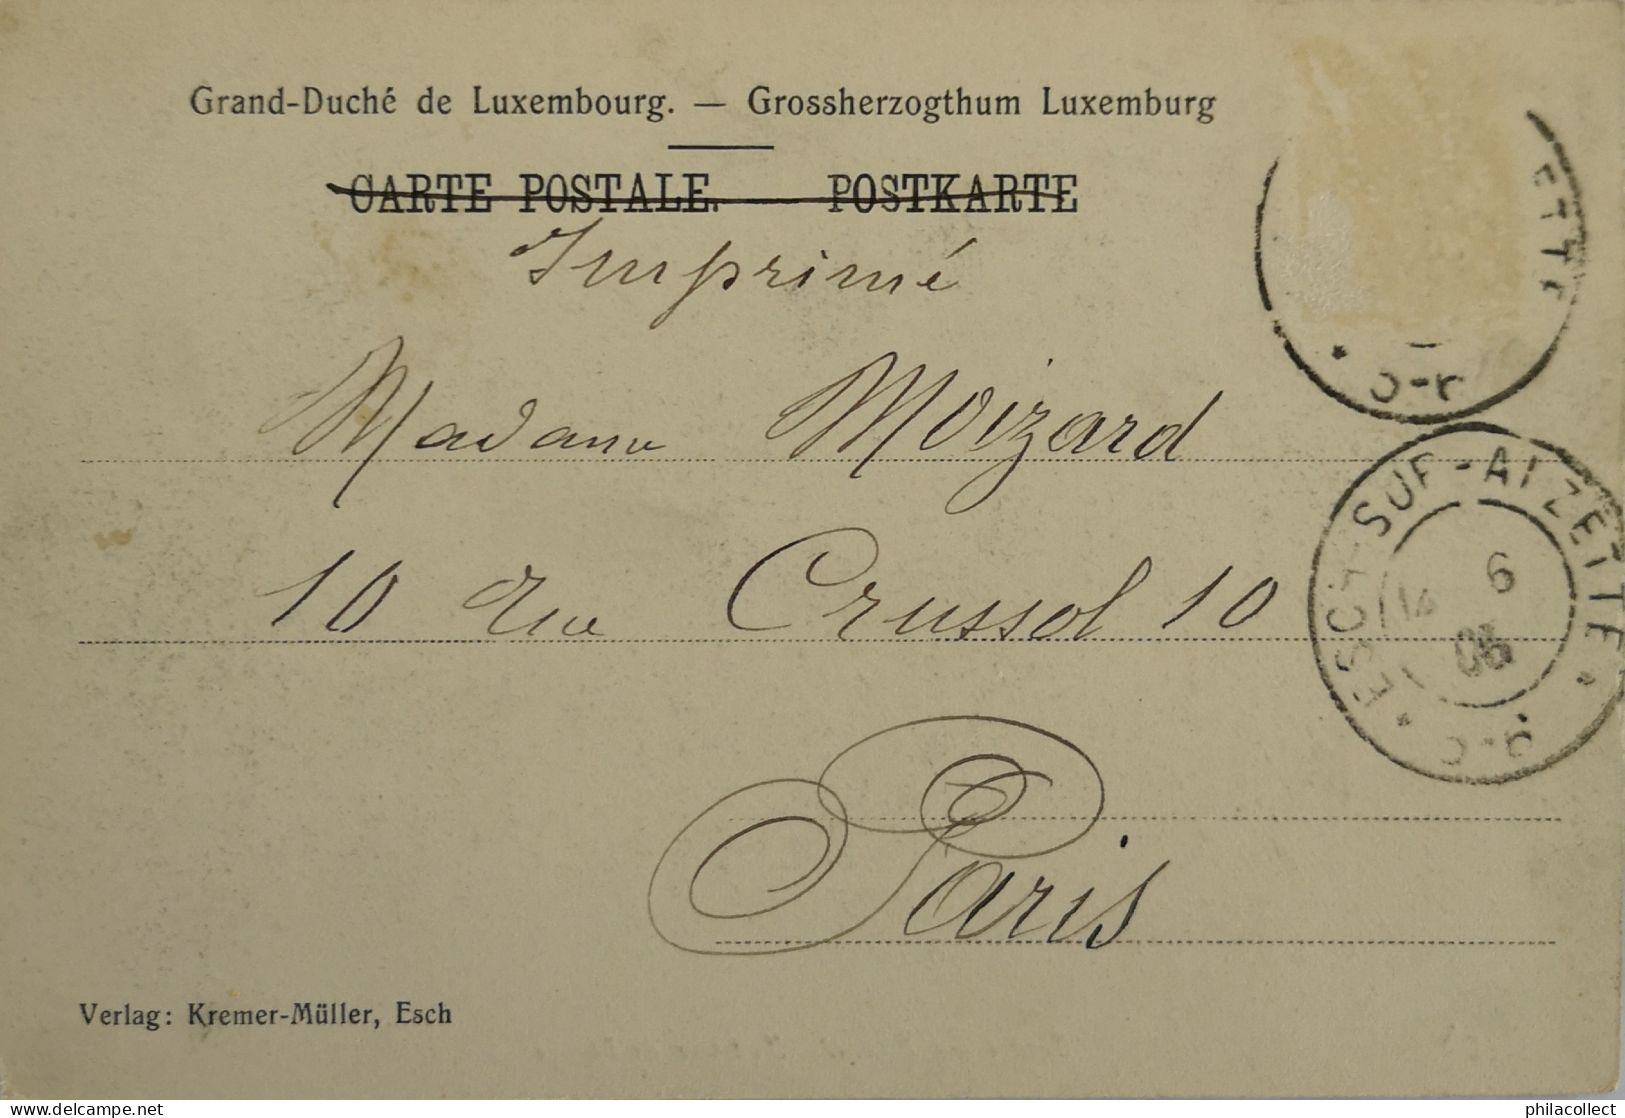 Grand-Duché de Luxembourg. — Grossherzogthum Luxemburg
CARTE POSTALE. POSTKARTE
Imprimé
ETTE
Madame Moizard
ESCH-SUR-ALZETTE
6
10 rue Crussol 10
Paris
Verlag: Kremer-Müller, Esch
www.delcampe.net
philacollect